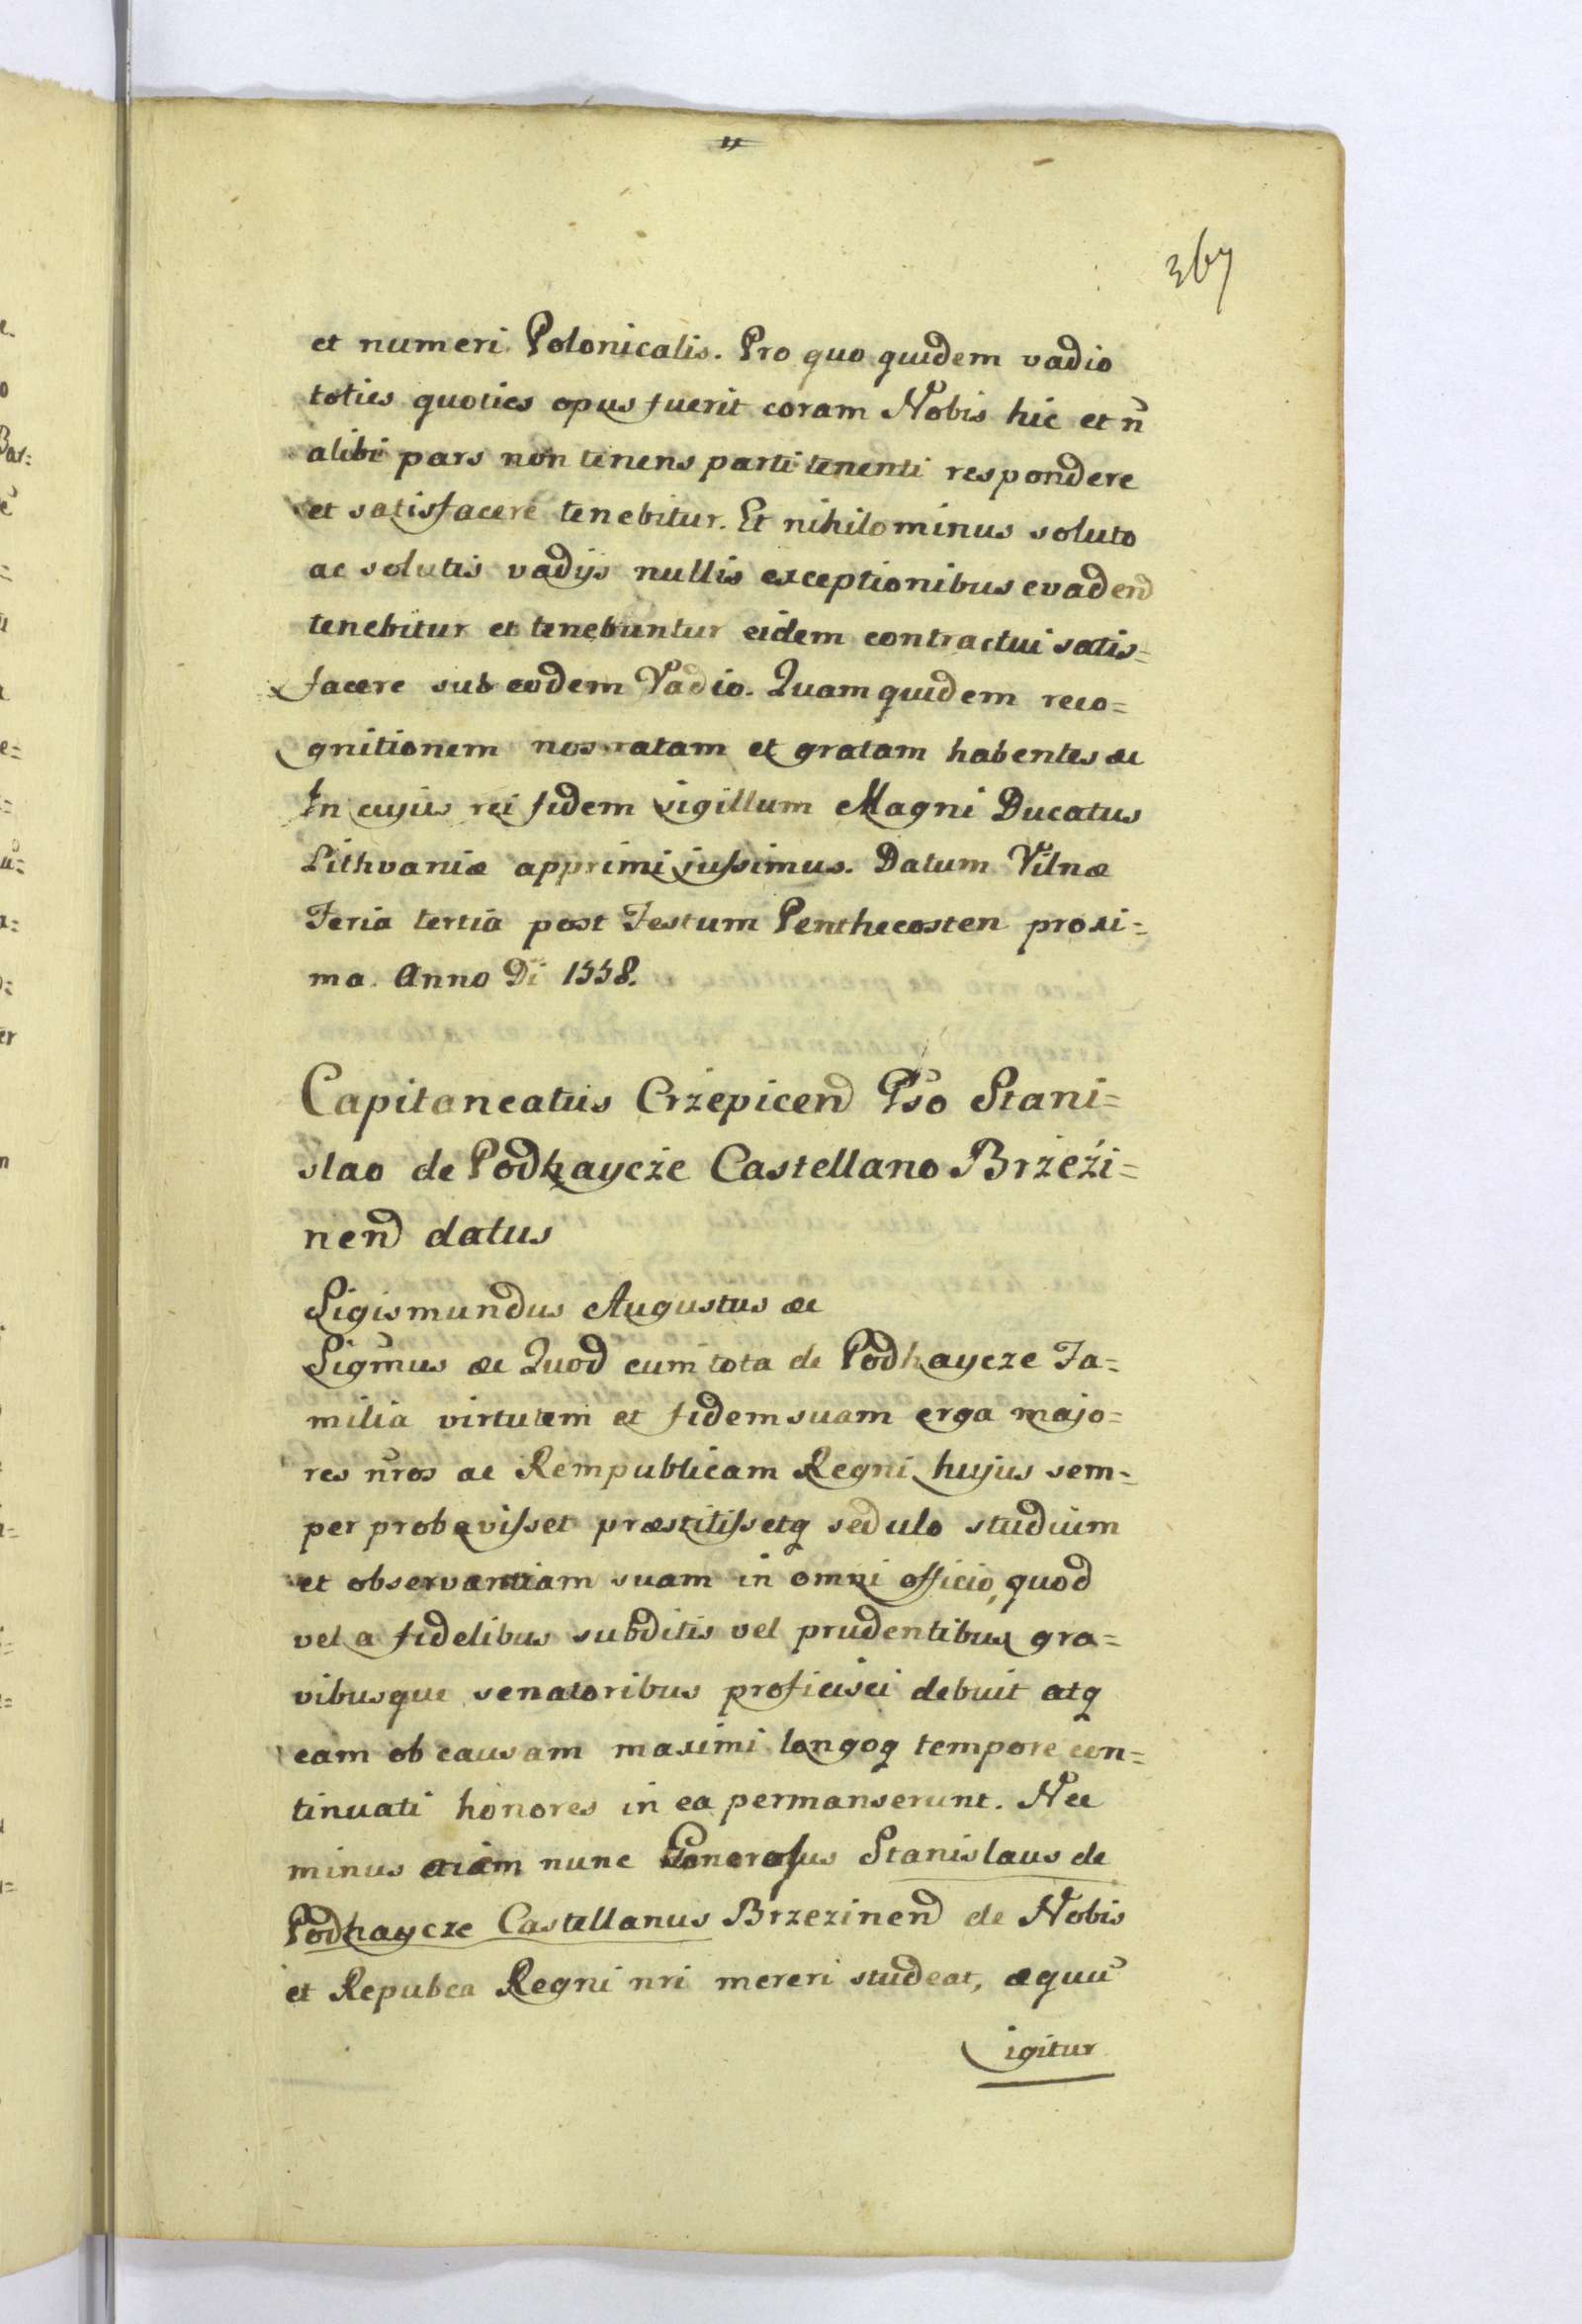 367
et numeri Polonicalis. Pro quo quidem vadio
toties quoties opus fuerit coram Nobis hic et n̄
alibi pars non tenens parti tenenti respondere
et satisfacere tenebitur. Et nihilominus soluto
ac solutis vadijs nullis exceptionibus evadend
tenebitur et tenebuntur eidem contractui satis=
facere sub eodem Vadio. Quam quidem reco=
gnitionem nos ratam et gratam habentes &c
In cujus rei fidem sigillum Magni Ducatus
Lithvaniæ apprimi jussimus. Datum Vilnæ
Feria tertia post Festum Penthecosten proxi=
ma. Anno Di 1558.
Capitaneatus Crzepicen̄ Gso Stani=
slao de Podhaycze Castellano Brzezi=
nen̄ datus
Sigismundus Augustus &c
Sigm̄us &c Quod cum tota de Podhaycze Fa=
milia virtutem et fidem suam erga majo=
res n̄ros ac Rempublicam Regni hujus sem=
per probavisset præstitissetq sedulo studium
et observantiam suam in omni officio, quod
vel a fidelibus subditis vel prudentibus gra=
vibusque senatoribus proficisci debuit atq
eam ob causam maximi longoq tempore con=
tinuati honores in ea permanserunt. Nec
minus etiam nunc Generosus Stanislaus de
Podhaycze Castellanus Brzezinen̄ de Nobis
et Repubca Regni nri mereri studeat, æquū
igitur